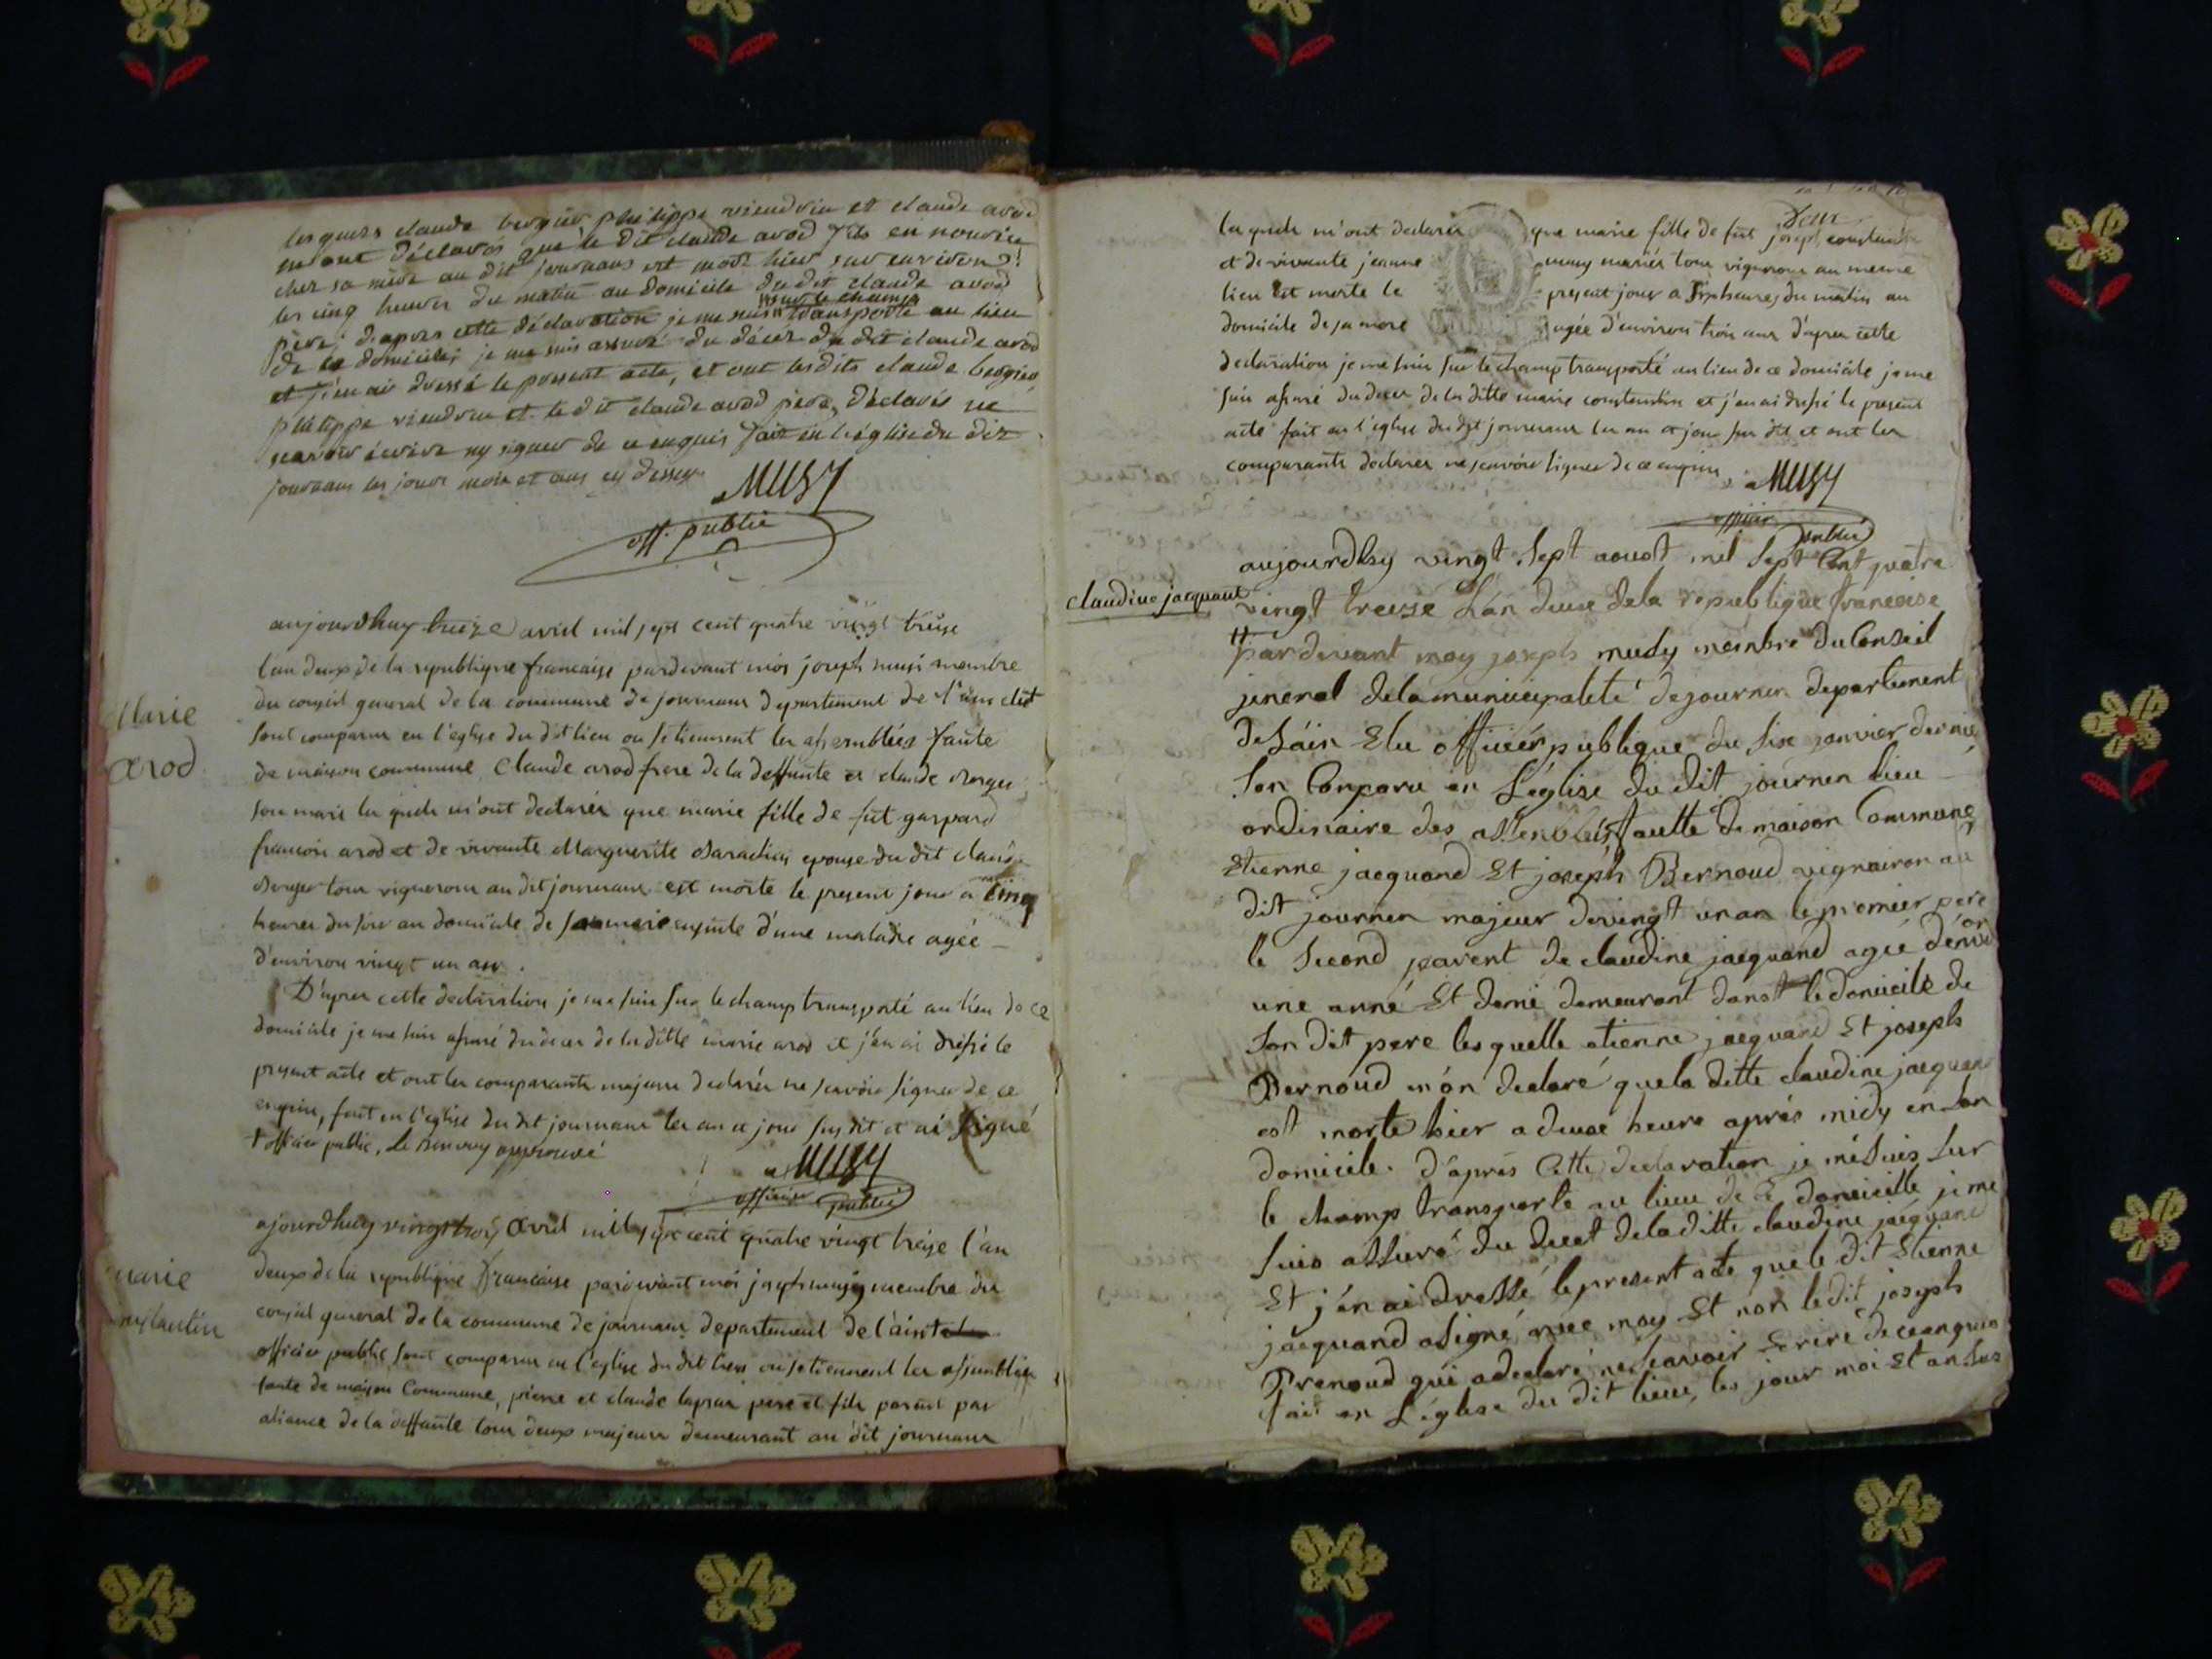 les quels claude bergier philippe viendrin et claude arod
m'ont déclarés que le dit claude arod fils en nourice
ches sa mère au dit journans est mort hier sur environ
les cinq heures du matin au domicile du dit claude arod
sur le champ
père; d'apres cette déclaration je me suis transporté au lieu
de ce domicile, je me suis assuré du décès du dit claude arod
et j'en ai dressé le présent acte, et ont les dits claude bergier
philippe viendrin et le dit claude arod père, déclarés ne
scavoir écrire ny signer de ce enquis fait en l'église du dit
journans les jours mois et ans cy dessus
MUSY
off. public
Marie
arod
aujourdhuy treize avril mil sept cent quatre vingt treise
l'an deux de la republique francaise pardevant moi joseph musi membre
du conseil general de la commune de journans departement de l'ain elut
sont comparu en l'eglise du dit lieu ou se tiennent les assemblées faute
de maison commune Claude arod frere de la deffunte et claude
son mari les quels m'ont declarés que marie fille de fut gaspard
francois arod et de vivante Marguerite epouse du dit claude
tous vignerons au dit journans est morte le present jour a cinq
heures du soir au domicile de son mari ensuite d'une maladie agée
d'environ vingt un ans.
D'apres cette declaration je me suis sur le champ transporté au lieu de ce
domicile je me suis assuré du deces de la ditte marie arod et j'en ai dressé le
present acte et ont les comparants majeurs declarés ne scavoir signer de ce
enquis, fait en l'eglise du dit journans les an et jour susdit et ai signé
+ officier public, le renvoy approuvé
MUSY
officier public
marie
constantin
ajourdhuy vingt trois avril mil sept cent quatre vingt treise l'an
deux de la republique francaise pardevant moi joseph musy membre du
conseil general de la commune de journans departement de l'ain
officier public sont comparu en l'eglise du dit lieu ou se tiennent les assemblées
faute de maison Commune, pierre et claude pere et fils parent par
aliance de la deffunte tous deux majeurs demeurant au dit journans
deux
les quels m'ont declarés que marie fille de fut joseph constantin
et de vivante jeanne musy mariés tous vignerons au meme
lieu est morte le present jour a six heures du matin au
domicile de sa mere agée d'environ trois ans d'apres cette
declaration je me suis sur le champ transporté au lieu de ce domicile je me
suis assuré du deces de la ditte marie constantin et j'en ai dressé le present
acte fait en l'eglise du dit journans les an et jour sus dit et ont les
comparants declarés ne scavoir signer de ce enquis
MUSY
officier public
claudine jacquand
aujourdhy vingt sept aoust mil sept Cent quatre
vingt treize L'an deuse de la republique francoise
pardevant moy joseph mudy membre du Conseil
jeneral de la municipaleté de journen departement
de L'ain Elu officier publique du six janvier dernié
son Conparu en L'église du dit journen lieu
ordinaire des assenbleés fautte de maison Commune
Etienne jacquand Et joseph Bernoud vignairon au
dit journen majeur de vingt un an le premier pere
le second parent de claudine jacquand agée d'énviron
une anné Et demi demeurant dans le domicile de
son dit pere les quelle etienne jacquand Et joseph
Bernoud m'ón declaré que la ditte claudine jacquand
est morte hier a deuse heure aprés midy én son
domicile. d'aprés Cette declaration je mé suis sur
le champ transporte au lieu de Ce domicille je me
suis assuré du decet de la ditte claudine jacquand
Et j'én ai dressé le present acte que le dit Etienne
jacquand a signé avec moy Et non le dit joseph
Prenoud qui a declaré ne scavoir Ecrire de ce enquis
fait en L'église du dit lieu, les jour moi Et an sus